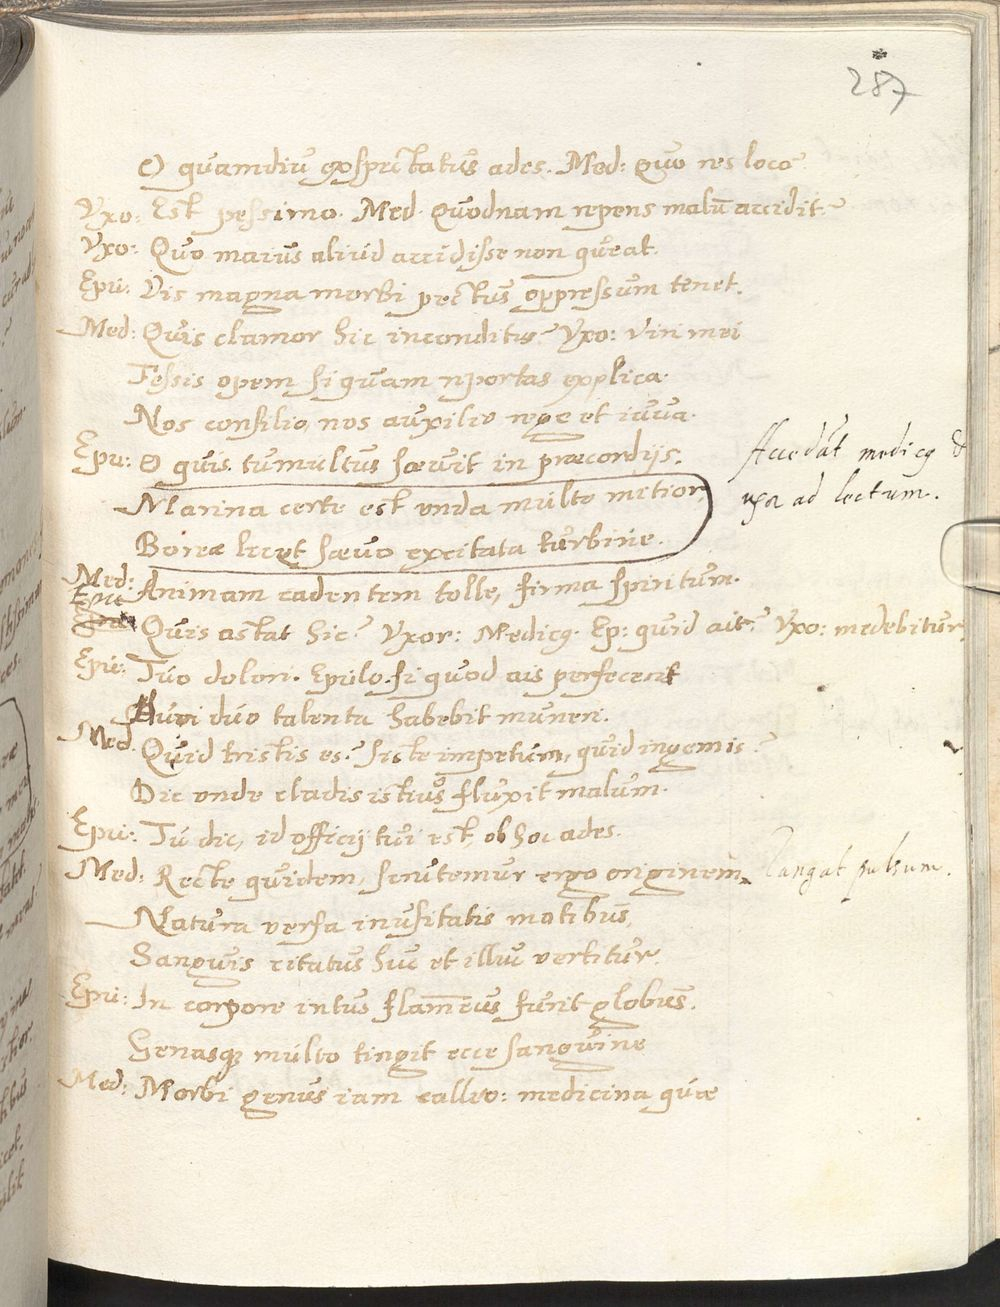 287
O quamdiu exspectatus ades. Med: Quo res loco?
Vxo: Est pessimo. Med. Quodnam repens malũ accidit?
Vxo: Quo maius aliud accidisse non queat.
Epu: Vis magna morbi pectus oppressum tenet.
Med: Quis clamor hic inconditus? Vxo: Viri mei
Fessis opem si quam reportas explica.
Nos consilio, nos auxilio rege et iuva.
Epu: O quis tumultus saevit in praecordijs.
Accedãt medicq &
uxor ad lectum.
Marina certe est unda multo mitior,
Boreae licet saevo excitata turbine.
Med: Animam cadentem tolle, firma spiritum.
Epu: Quis astat hic? Vxor: Medicq. Ep: quid ait? Vxo: medebitur
Tuo dolori. Epu: si quod ais perfecerit
Auri duo talenta habebit muneri.
Med. Quid tristis es? siste impetum, quid ingemis?
Dic unde cladis istius fluxit malum.
Epu: Tu dic, id officij tui est, ob hoc ades.
Med: Recte quidem, scrutemur ergo originem,
Tangat pulsum.
Natura versa inusitatis motibus,
Sanguis citatus huc et illuc vertitur.
Epu: In corpore intus flam̃eus furit globus.
Genasq; multo tingit ecce sanguine
Med: Morbi genus iam calleo: medicina quae